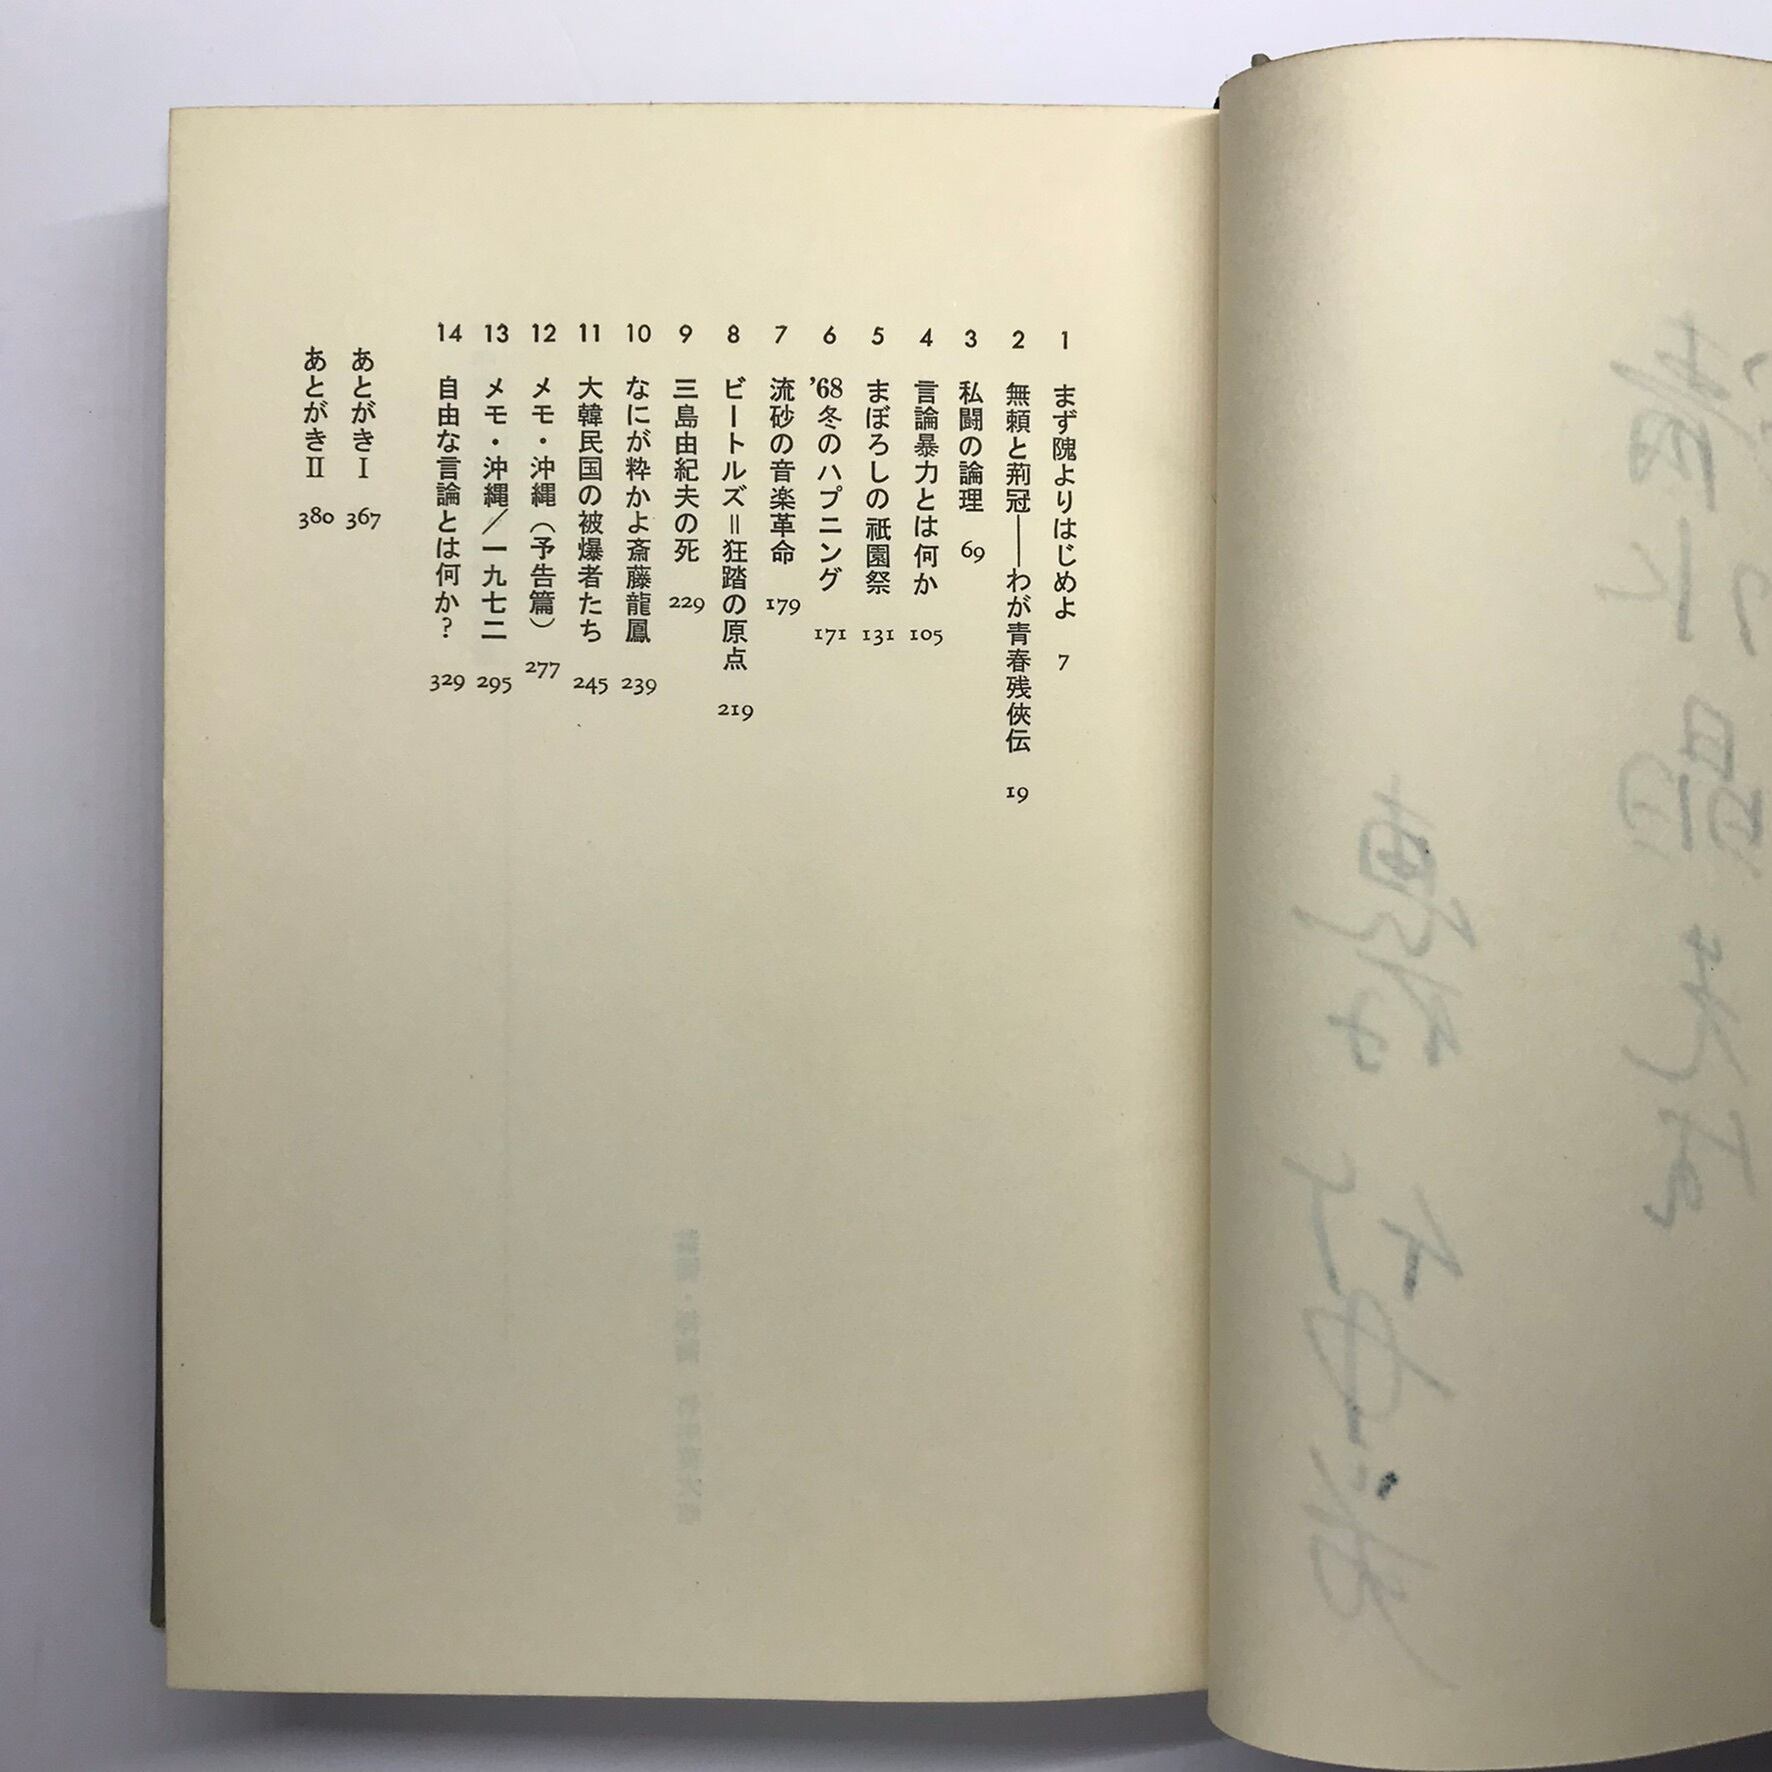 1 まず隗よりはじめよ 7
2 無頼と荊冠――わが青春残俠伝 19
3 私闘の論理 69
4 言論暴力とは何か 105
5 まぼろしの祇園祭 131
6 '68冬のハプニング 171
7 流砂の音楽革命 179
8 ビートルズ＝狂踏の原点 219
9 三島由紀夫の死 229
10 なにが粋かよ斎藤龍鳳 239
11 大韓民国の被爆者たち 245
12 メモ・沖縄（予告篇） 277
13 メモ・沖縄／一九七二 295
14 自由な言論とは何か？ 329
あとがきⅠ 367
あとがきⅡ 380